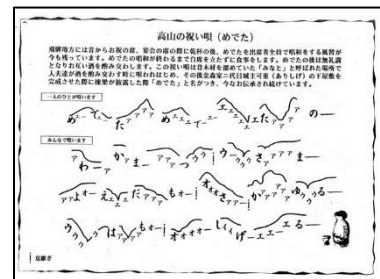 高山の祝い唄（めでた）
飛騨地方には昔からお祝の席、宴会の席の際に乾杯の後、めでたを出席者全員で唱和をする風習が
今も残っています。めでたの唱和が終わるまで自席を立たずに食事をします。めでたの後は無礼講
となりお互い酒を酌み交わします。この祝い唄は昔木材を溜めていた「みなと」と呼ばれた場所で
人夫達が酒を酌み交わす時に唄われはじめ、その後金森家二代目城主可重（ありしげ）の下屋敷を
完成させた際に棟梁が披露した際「めでた」と名がつき、今なお伝承され続けています。
一人のひとが唄います
めェーでェたァァァめェーでェーエェェたァァァのー
みんなで唄います
ァわーァかァまーァァァつゥゥゥ！ウーゥゥさァァァァまー
ァァよォーえェェェだァァァもォー！オォォさァァー！がァァァァゆゥゥるー
ウゥゥゥはァァもォー！オォォォーしィィげーエェーエるー
！息継ぎ